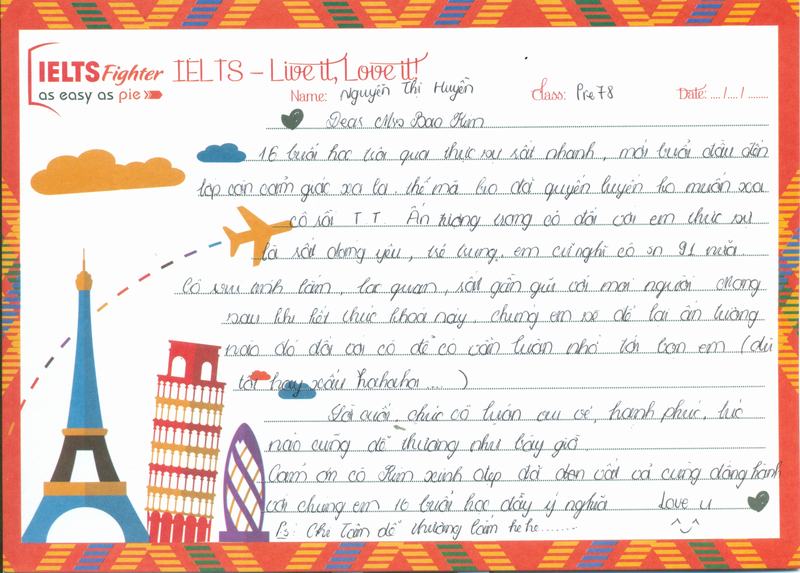 IELTS Fighter
as easy as pie
IELTS – Live it, Love it!
Name: Nguyễn Thị Huyền Class: Pre 78 Date: .... /.... / ........
Dear Mrs Bao Kum
16 buổi học vừa qua thực sự rất nhanh, mới buổi đầu đến
lớp còn cảm giác xa lạ. thế mà h đã quyến luyến ko muốn xa
cô rồi T T. Ấn tượng trong cô đối với em thực sự
là rất đáng yêu, trẻ trung. em cứ nghĩ cô sn 91 nữa.
Cô siêu xinh lắm, lạc quan, rất gần gũi với mọi người. mong
sau khi kết thúc khoá này, chúng em sẽ để lại ấn tượng
nào đó đối với cô để cô vẫn luôn nhớ tới bọn em (dù
tốt hay xấu hahaha ....)
Lời cuối, chúc cô luôn vui vẻ, hạnh phúc, lúc
nào cũng dễ thương như bây giờ.
Cảm ơn cô Kum xinh đẹp đã vất vả cùng đồng hành
với chúng em 16 buổi học đầy ý nghĩa Love u
Ps: Chị Tâm dễ thương lắm he he........